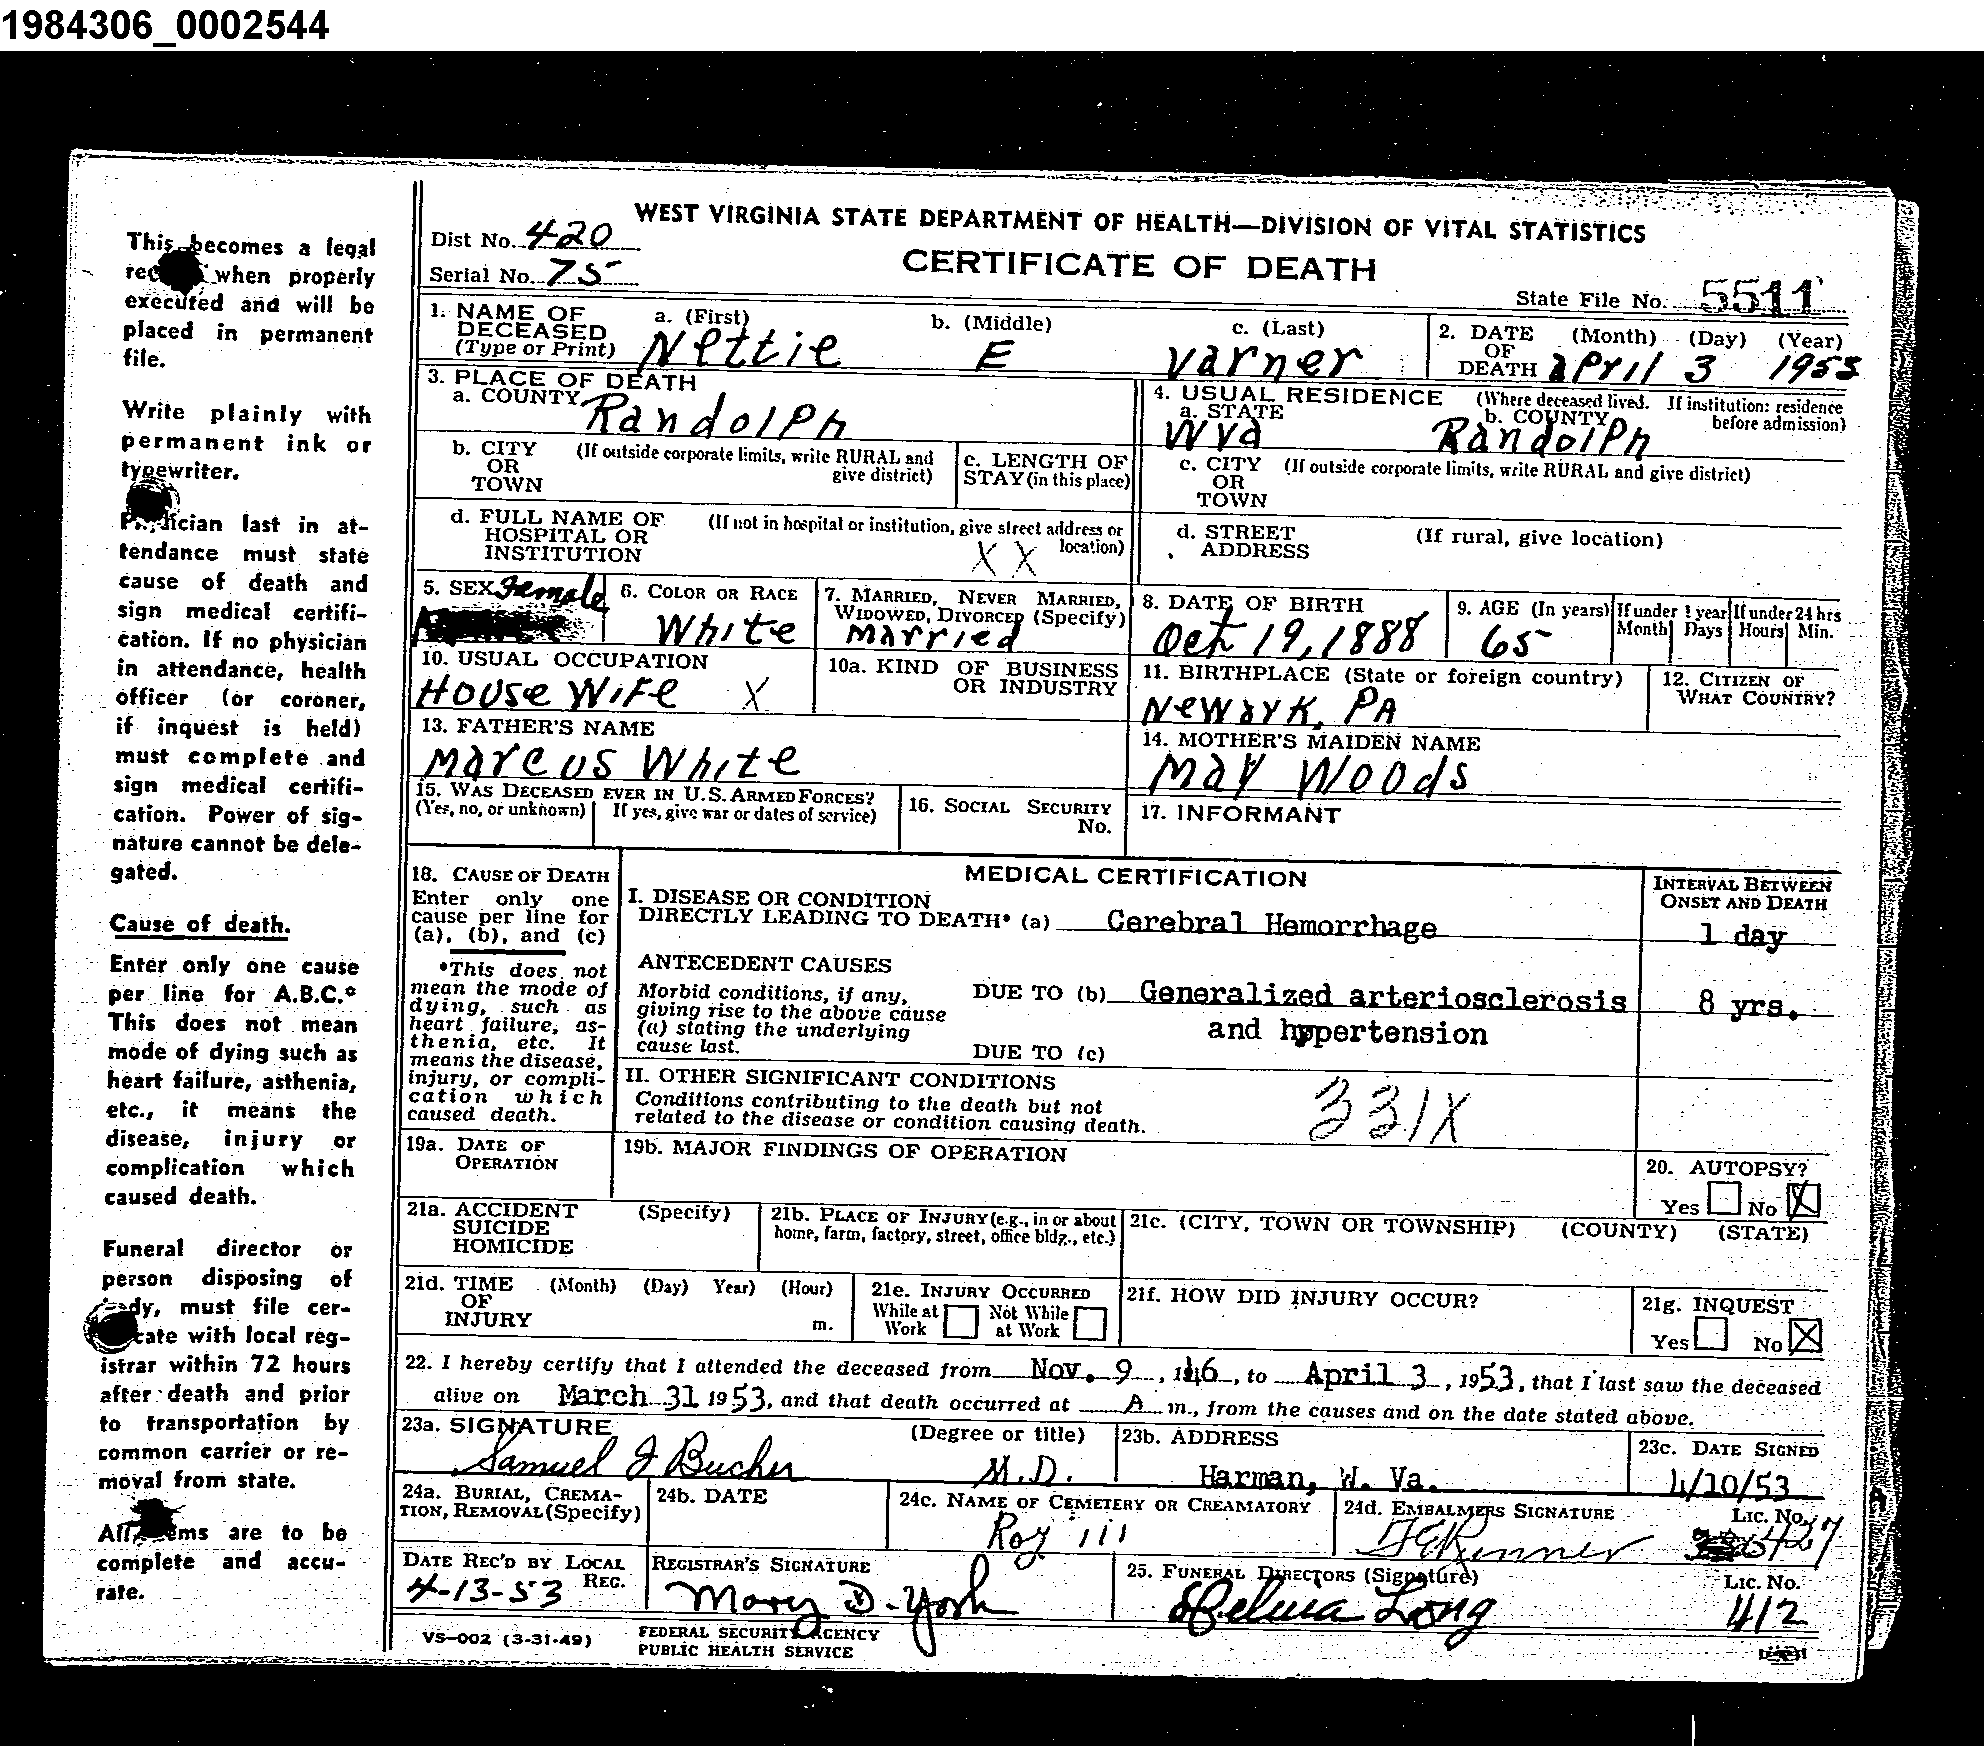 1984306_0002544
This becomes a legal
when properly
executed and will be
placed in permanent
file.
Write plainly with
permanent ink or
typewriter.
Physician last in at-
tendance must state
cause of death and
sign medical certifi-
cation. If no physician
in attendance, health
officer (or coroner,
if inquest is held)
must complete and
sign medical certifi-
cation. Power of sig-
nature cannot be dele-
gated.
Cause of death.
Enter only one cause
per line for A.B.C.*
This does not mean
mode of dying such as
heart failure, asthenia,
etc., it means the
disease, injury or
complication which
caused death.
Funeral director or
person disposing of
must file cer-
with local reg-
istrar within 72 hours
after death and prior
to transportation by
common carrier or re-
moval from state.
are to be
complete and accu-
rate.
WEST VIRGINIA STATE DEPARTMENT OF HEALTH—DIVISION OF VITAL STATISTICS
Dist No. 420
CERTIFICATE OF DEATH
Serial No. 75
State File No. 5511
1. NAME OF DECEASED (Type or Print) a. (First) Nettie b. (Middle) E c. (Last) Varner
2. DATE OF DEATH (Month) (Day) (Year) April 3 1953
3. PLACE OF DEATH
a. COUNTY Randolph
4. USUAL RESIDENCE (Where deceased lived. If institution: residence before admission)
a. STATE WVa b. COUNTY Randolph
b. CITY OR TOWN (If outside corporate limits, write RURAL and give district)
c. LENGTH OF STAY (in this place)
c. CITY OR TOWN (If outside corporate limits, write RURAL and give district)
d. FULL NAME OF HOSPITAL OR INSTITUTION (If not in hospital or institution, give street address or location) X X
d. STREET ADDRESS (If rural, give location)
5. SEX Female
6. COLOR OR RACE White
7. MARRIED, NEVER MARRIED, WIDOWED, DIVORCED (Specify) Married
8. DATE OF BIRTH Oct 19, 1888
9. AGE (In years) 65 If under 1 year Month Days If under 24 hrs Hours Min.
10. USUAL OCCUPATION House Wife X
10a. KIND OF BUSINESS OR INDUSTRY
11. BIRTHPLACE (State or foreign country) Newark, PA
12. CITIZEN OF WHAT COUNTRY?
13. FATHER'S NAME Marcus White
14. MOTHER'S MAIDEN NAME May Woods
15. WAS DECEASED EVER IN U.S. ARMED FORCES?
(Yes, no, or unknown) If yes, give war or dates of service)
16. SOCIAL SECURITY No.
17. INFORMANT
18. CAUSE OF DEATH
Enter only one
cause per line for
(a), (b), and (c)
*This does not
mean the mode of
dying, such as
heart failure, as-
thenia, etc. It
means the disease,
injury, or compli-
cation which
caused death.
MEDICAL CERTIFICATION
INTERVAL BETWEEN ONSET AND DEATH
I. DISEASE OR CONDITION
DIRECTLY LEADING TO DEATH* (a) Cerebral Hemorrhage 1 day
ANTECEDENT CAUSES
Morbid conditions, if any,
giving rise to the above cause
(a) stating the underlying
cause last.
DUE TO (b) Generalized arteriosclerosis 8 yrs.
and hypertension
DUE TO (c)
II. OTHER SIGNIFICANT CONDITIONS
Conditions contributing to the death but not
related to the disease or condition causing death.
331X
19a. DATE OF OPERATION
19b. MAJOR FINDINGS OF OPERATION
20. AUTOPSY?
Yes No X
21a. ACCIDENT SUICIDE HOMICIDE (Specify)
21b. PLACE OF INJURY (e.g., in or about home, farm, factory, street, office bldg., etc.)
21c. (CITY, TOWN OR TOWNSHIP) (COUNTY) (STATE)
21d. TIME OF INJURY (Month) (Day) Year) (Hour) m.
21e. INJURY OCCURRED
While at Work Not While at Work
21f. HOW DID INJURY OCCUR?
21g. INQUEST
Yes No X
22. I hereby certify that I attended the deceased from Nov. 9, 146, to April 3, 1953, that I last saw the deceased
alive on March 31 1953, and that death occurred at A m., from the causes and on the date stated above.
23a. SIGNATURE (Degree or title)
Samuel J Bucher M.D.
23b. ADDRESS
Harman, W. Va.
23c. DATE SIGNED
4/10/53
24a. BURIAL, CREMA-
TION, REMOVAL (Specify)
24b. DATE
24c. NAME OF CEMETERY OR CREAMATORY
24d. EMBALMERS SIGNATURE Lic. No.
427
DATE REC'D BY LOCAL REG.
4-13-53
REGISTRAR'S SIGNATURE
Mary D. York
25. FUNERAL DIRECTORS (Signature) Lic. No.
Long 412
VS-002 (3-31-49)
FEDERAL SECURITY AGENCY
PUBLIC HEALTH SERVICE